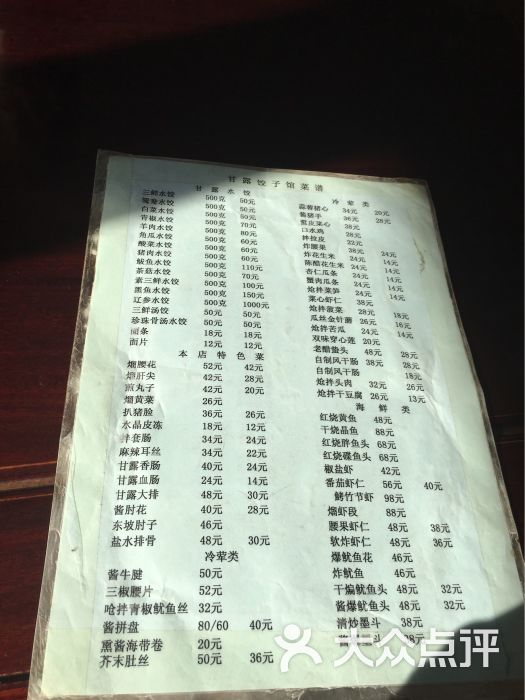 甘露饺子馆菜谱
甘露水饺
三鲜水饺 500克 50元
鸳鸯水饺 500克 50元
白菜水饺 500克 50元
青椒水饺 500克 70元
羊肉水饺 500克 80元
角瓜水饺 500克 60元
酸菜水饺 500克 60元
猪肉水饺 500克 60元
鲅鱼水饺 500克 110元
茶菇水饺 500克 70元
素三鲜水饺 500克 100元
墨鱼水饺 500克 150元
辽参水饺 500克 1000元
三鲜汤饺 50元 50元
珍珠骨汤水饺 50元 50元
面条 18元 18元
面片 12元 12元
本店特色菜
熘腰花 52元 42元
熘肝尖 42元 28元
煎丸子 42元 28元
熘黄菜 26元
扒猪脸 36元 26元
水晶皮冻 18元 12元
拌套肠 34元 24元
麻辣耳丝 34元 22元
甘露香肠 40元 24元
甘露血肠 24元 14元
甘露大排 48元 30元
酱肘花 40元 28元
东坡肘子 46元
盐水排骨 48元 30元
冷荤类
酱牛腱 50元
三椒腰片 52元
呛拌青椒鱿鱼丝 32元
酱拼盘 80/60 40元
熏酱海带卷 20元
芥末肚丝 50元 36元
冷荤类
蒜蓉猪心 34元 20元
酱猪手 36元 28元
煎皮菜心 38元
口水鸡 28元
拌拉皮 22元
炸腰果 38元
炸花生米 24元 14元
陈醋花生米 24元 14元
杏仁瓜条 24元 14元
蟹肉瓜条 24元 14元
炝拌菜笋 24元 14元
菜心虾仁 38元
炝拌菠菜 28元 18元
瓜丝金针蘑 26元 16元
炝拌苦瓜 24元 14元
双味穿心莲 20元
老醋蛰头 48元 28元
自制风干肠 38元 28元
自制风干肠
炝拌头肉 32元 26元
炝拌干豆腐 26元 13元
海鲜类
红烧黄鱼 48元
干烧晶鱼 88元
红烧胖鱼头 68元
红烧碟鱼头 68元
椒盐虾 42元
番茄虾仁 56元 40元
鲜竹节虾 98元
熘虾段 88元
腰果虾仁 48元 38元
软炸虾仁 48元 36元
爆鱿鱼花 46元
炸鱿鱼 46元
干煸鱿鱼头 48元 32元
酱爆鱿鱼头 48元 32元
清炒墨斗 38元
大众点评